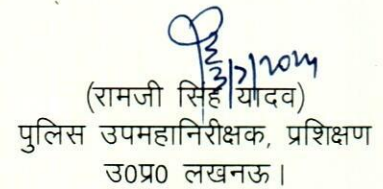 3/7/2024
(रामजी सिंह यादव)
पुलिस उपमहानिरीक्षक, प्रशिक्षण
उ0प्र0 लखनऊ।